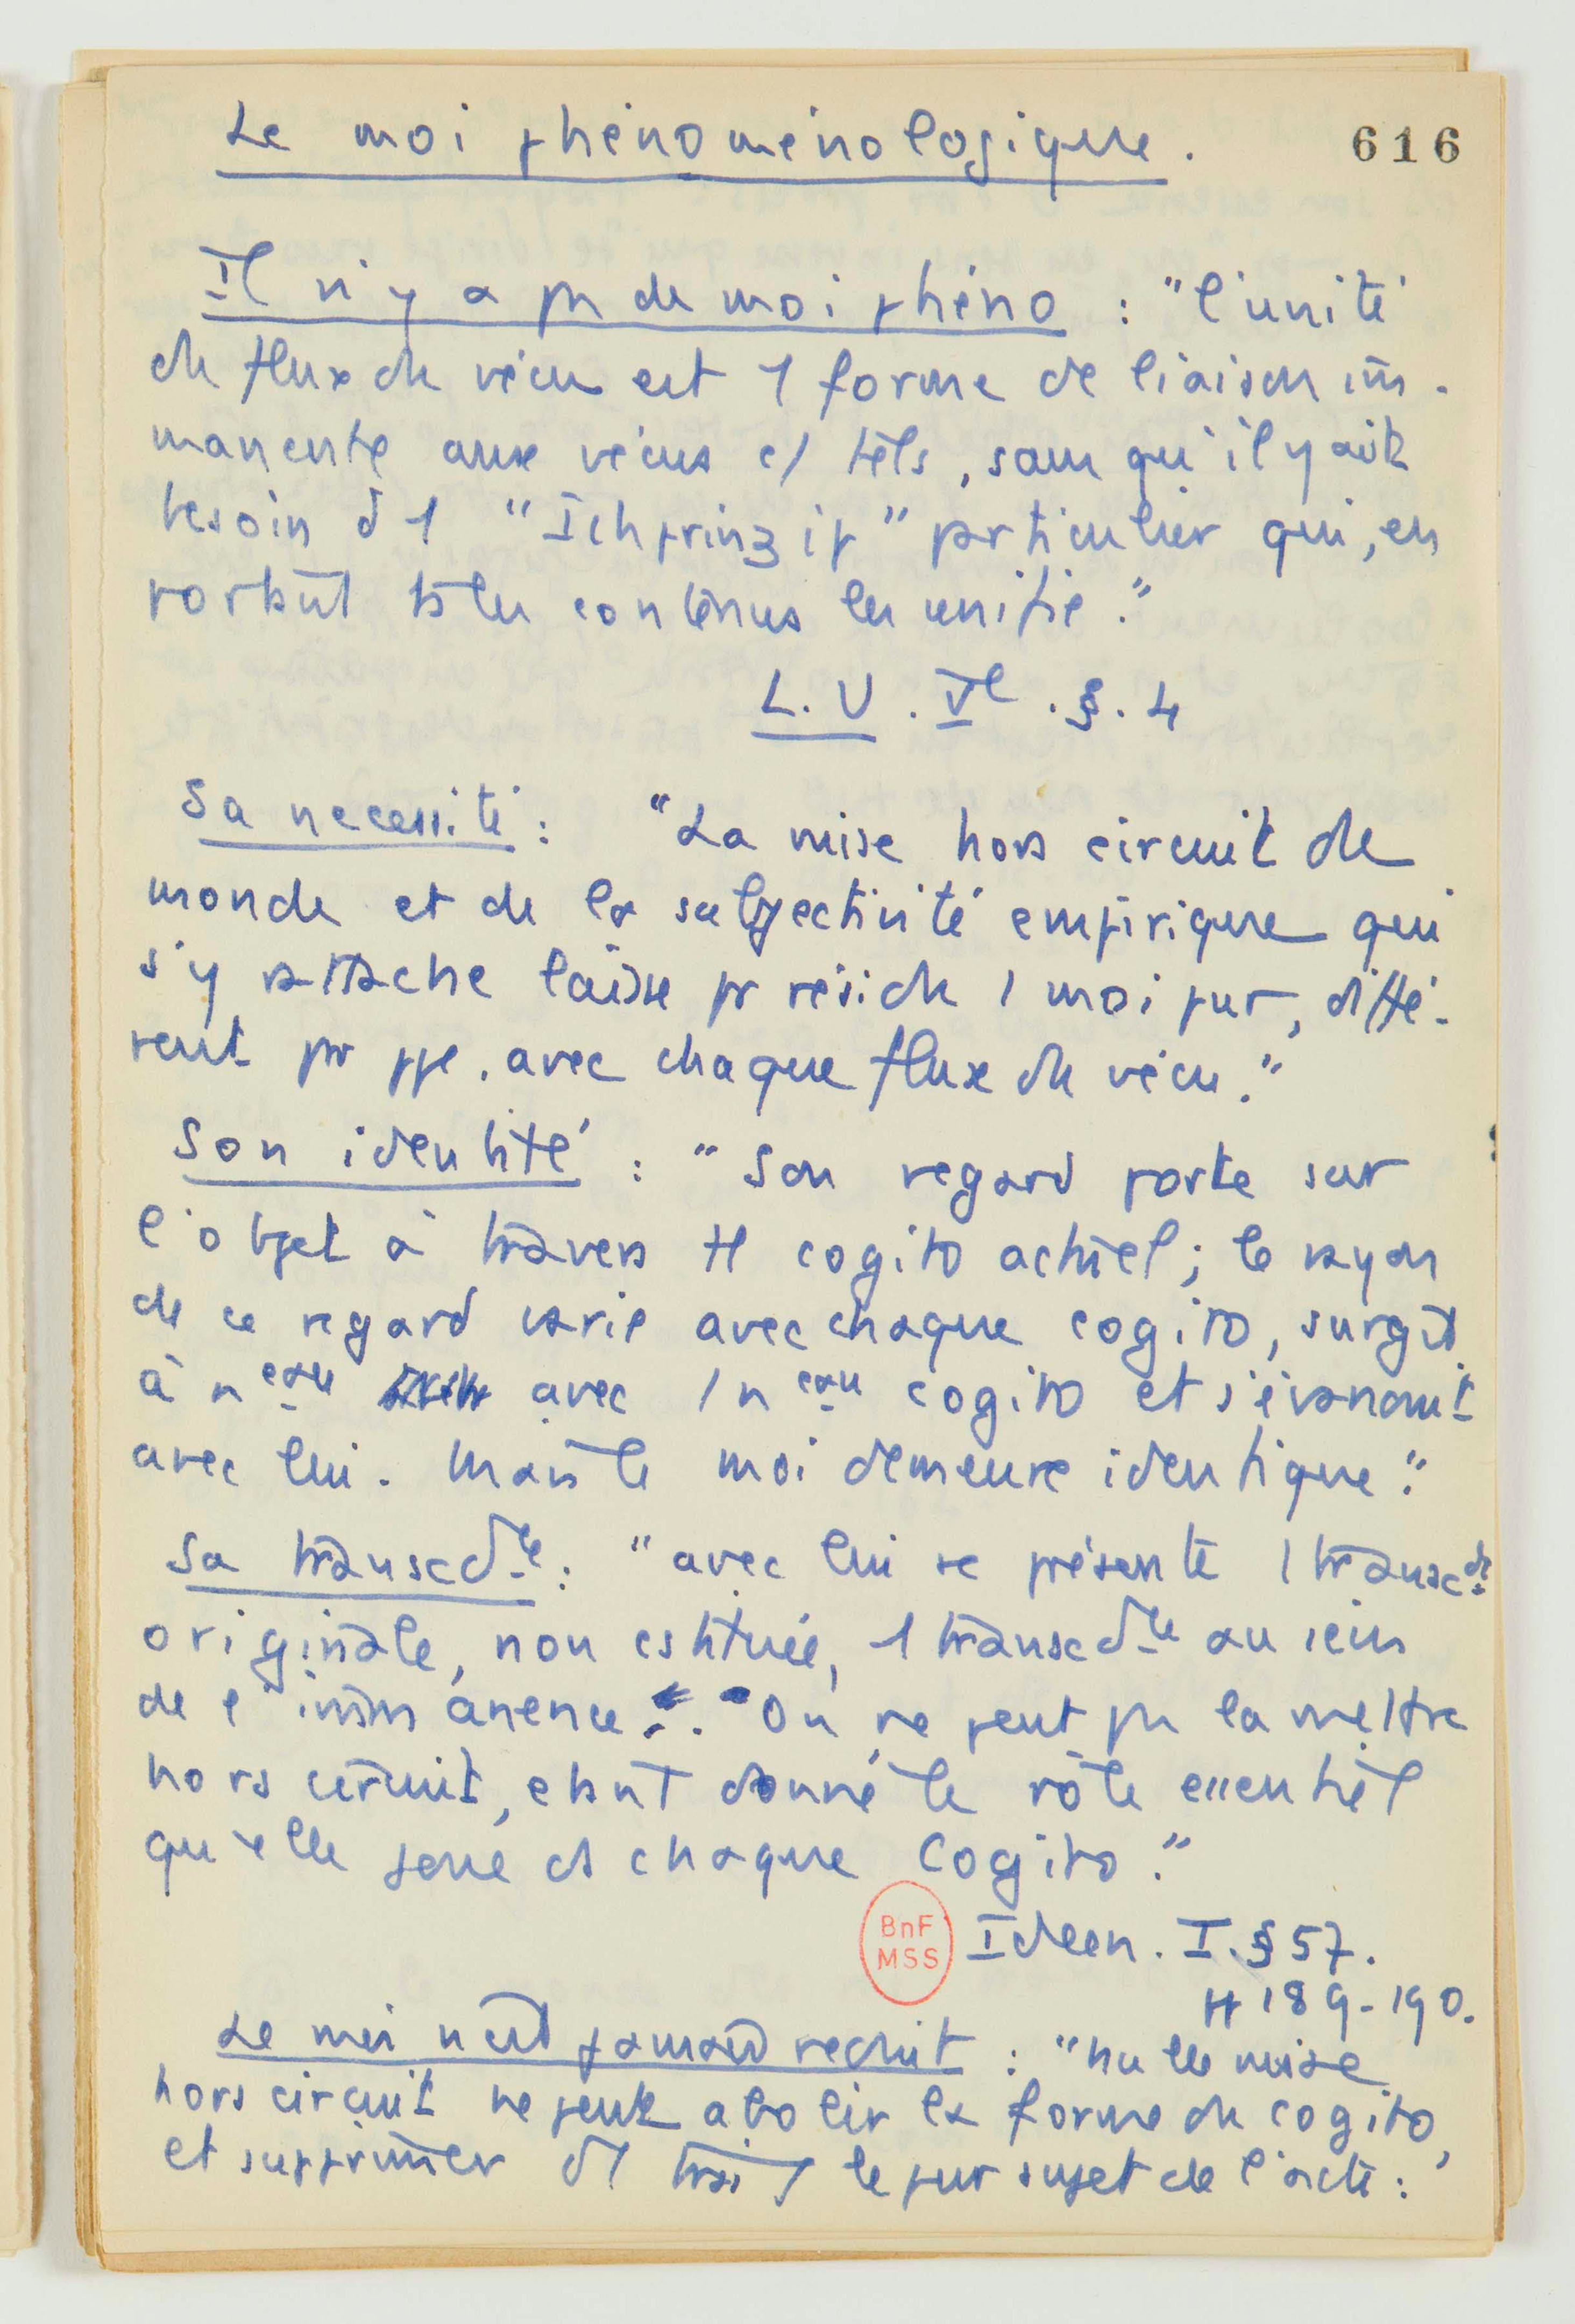 Le moi phénoménologique.
616
Il n'y a pas de moi phéno : "l'unité
du flux du vécu est 1 forme de liaison im-
manente aux vécus c/ tels, sans qu'il y ait
besoin d'1 "Ichprinzip" particulier qui, en
portant ts les contenus les unifie."
L.U. Ve. §. 4
Sa necessité : "La mise hors circuit du
monde et de la subjectivité empirique qui
s'y attache laisse pr résidu 1 moi pur, diffé-
rent pr ppe. avec chaque flux du vécu."
Son identité : "Son regard porte sur
l'objet à travers tt cogito actuel ; le rayon
de ce regard varie avec chaque cogito, surgit
à neau avec 1 neau cogito et s'évanouit
avec lui. Mais le moi demeure identique."
Sa transcdce : "avec lui se présente 1 transcdce
originale, non cstituée, 1 transcdce au sein
de l'immanence. On ne peut pas la mettre
hors circuit, etant donné le rôle essentiel
qu'elle joue ds chaque Cogito."
BnF
MSS
Ideen. I. § 57.
189-190.
Le moi n'est jamais reduit : "nulle mise
hors circuit ne peut abolir la forme du cogito,
et supprimer d'1 trait le pur sujet de l'acte :